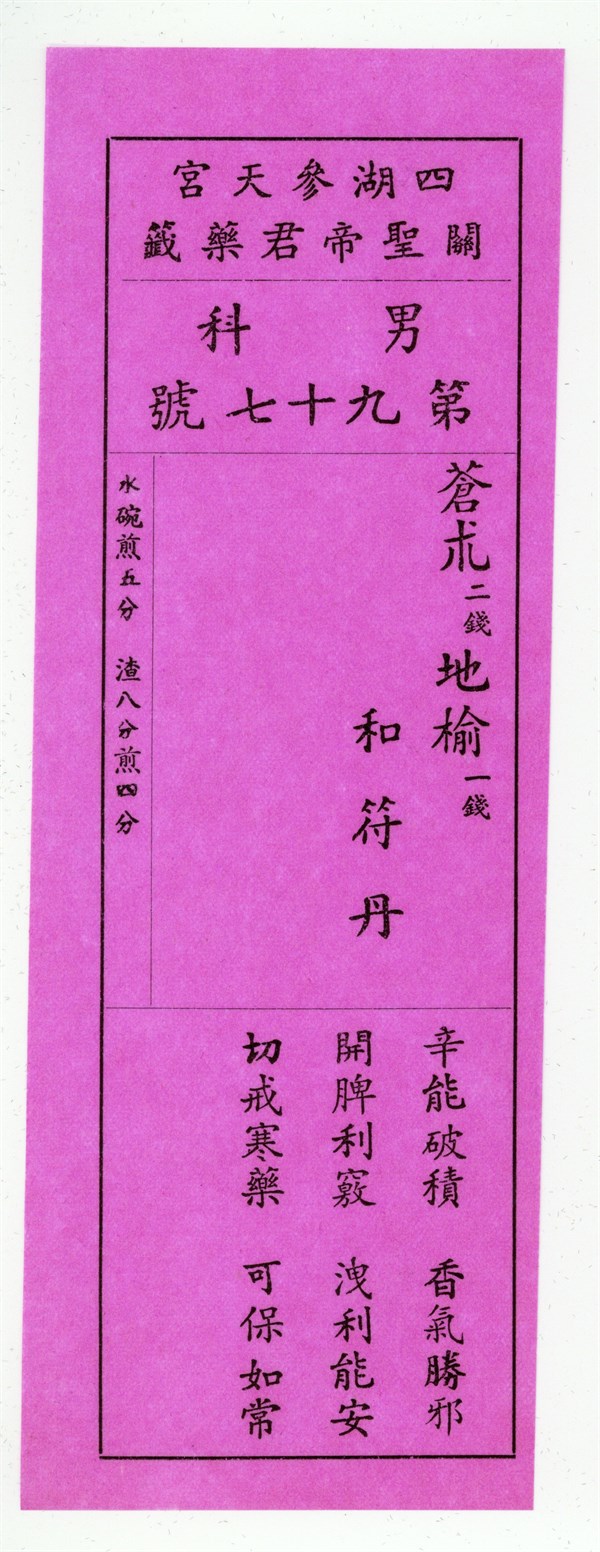 四湖參天宮
關聖帝君藥籤
男科
第九十七號
蒼朮二錢地榆一錢
和符丹
水碗煎五分 渣八分煎四分
辛能破積 香氣勝邪
開脾利竅 洩利能安
切戒寒藥 可保如常